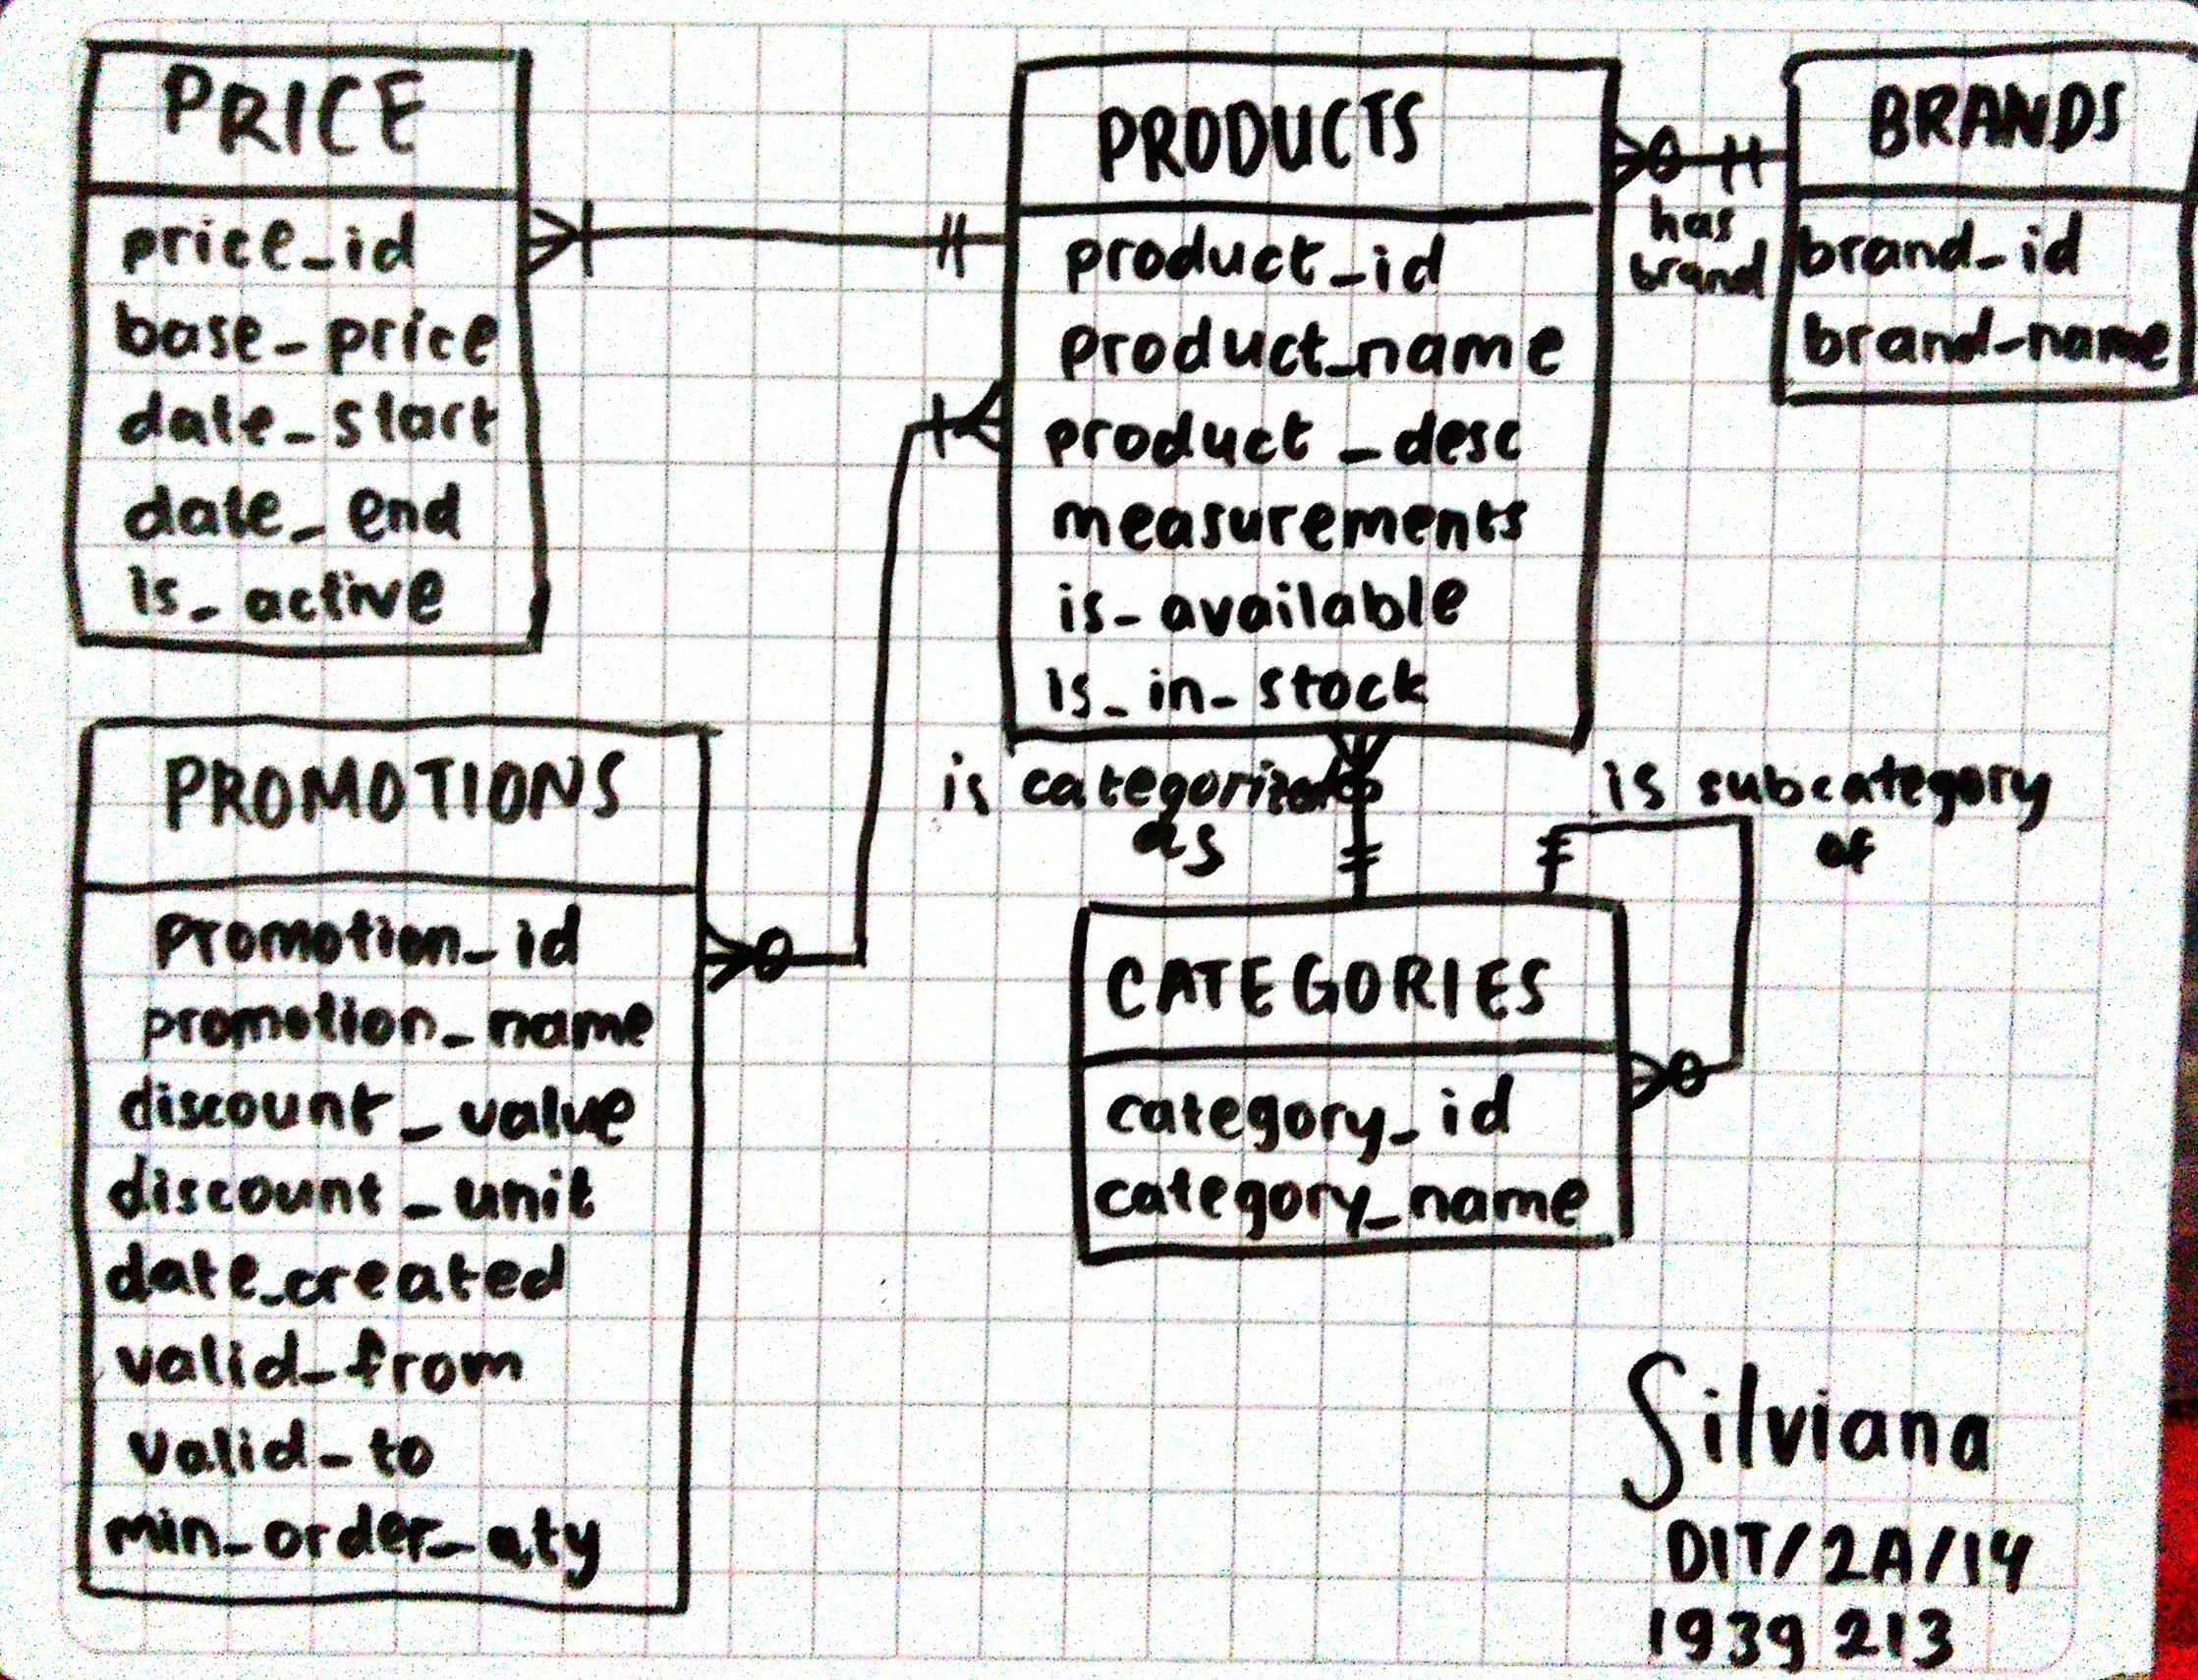 PRICE
price_id
base_price
date_start
date_end
is_active
PRODUCTS
product_id
product_name
product_desc
measurements
is_available
is_in_stock
has
brand
BRANDS
brand_id
brand_name
PROMOTIONS
promotion_id
promotion_name
discount_value
discount_unit
date_created
valid_from
valid_to
min_order_qty
is categorized
as
is subcategory
of
CATEGORIES
category_id
category_name
Silviana
DIT/2A/14
1939213